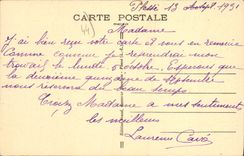 Plessé 13 Sept. 1931
CARTE POSTALE
Madame
J'ai bien reçu votre carte et vous en remercie
comme convenu je reprendrai mon
travail le lundi 5 octobre. Espérons que
la deuxième quinzaine de Septembre
nous réserve du beau temps
Croyez Madame a mes sentiments
les meilleurs
Laurence